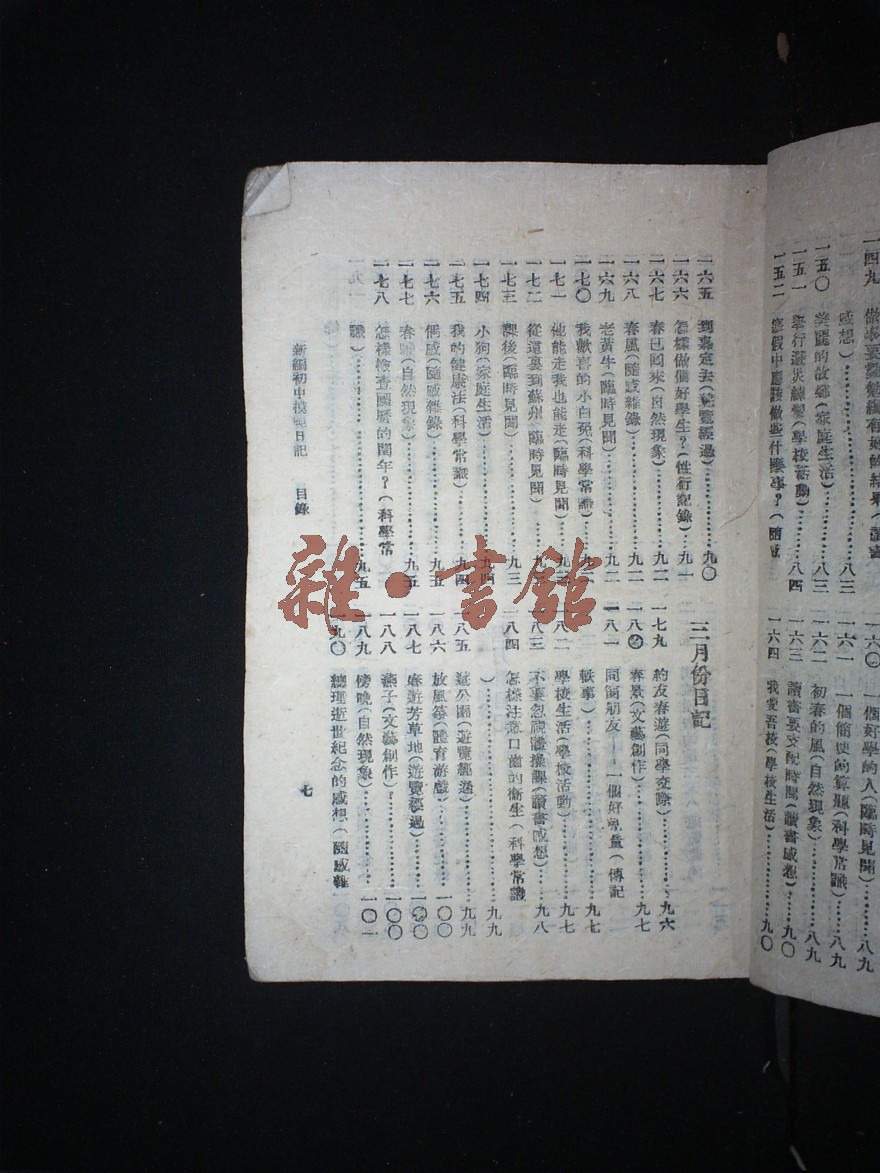 一四九　做事要勤勉纔有好的結果（讀書
感想）……八三
一五〇　美麗的故鄉（家庭生活）……八三
一五一　舉行避災練習（學校活動）……八四
一五二　寒假中應該做些什麼事？（隨感
一六〇　一個好學的人（臨時見聞）……八九
一六一　一個簡便的算題（科學常識）……八九
一六二　初春的風（自然現象）……八九
一六三　讀書要支配時間（讀書感想）……九〇
一六四　我愛吾校（學校生活）……九〇
一六五　到嘉定去（遊覽經過）……九〇
一六六　怎樣做個好學生？（性行記錄）……九一
一六七　春已回來（自然現象）……九一
一六八　春風（隨感雜錄）……九二
一六九　老黃牛（臨時見聞）……九二
一七〇　我歡喜的小白兔（科學常識）
一七一　他能走我也能走（臨時見聞）
一七二　從這裏到蘇州（臨時見聞）
一七三　課後（臨時見聞）……九三
一七四　小狗（家庭生活）……九四
一七五　我的健康法（科學常識）……九四
一七六　偶感（隨感雜錄）……九五
一七七　春晴（自然現象）……九五
一七八　怎樣檢查國曆的閏年？（科學常
識）……九五
三月份日記
一七九　約友春遊（同學交際）……九六
一八〇　春景（文藝創作）……九七
一八一　同窗朋友——一個好兒童（傳記
軼事）……九七
一八二　學校生活（學校活動）……九七
一八三　不要忽視體操課（讀書感想）……九八
一八四　怎樣注意口齒的衞生（科學常識
）……九九
一八五　遊公園（遊覽經過）……九九
一八六　放風箏（體育游戲）……一〇〇
一八七　春遊芳草地（遊覽經過）……一〇〇
一八八　燕子（文藝創作）……一〇〇
一八九　傍晚（自然現象）……一〇一
一九〇　總理逝世紀念的感想（隨感雜
新編初中模範日記　目錄　七
雜·書館